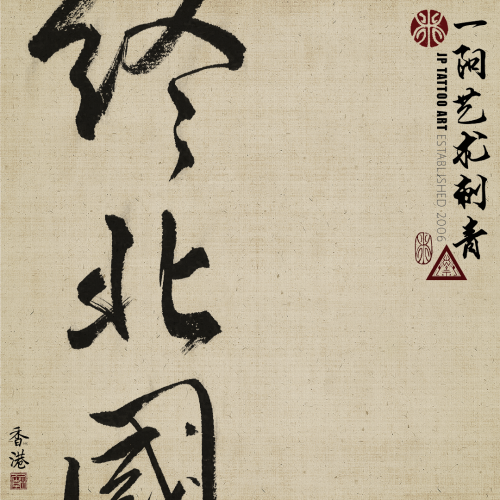 一阿艺术刺青
JP TATTOO ART ESTABLISHED 2006
终北國
香港